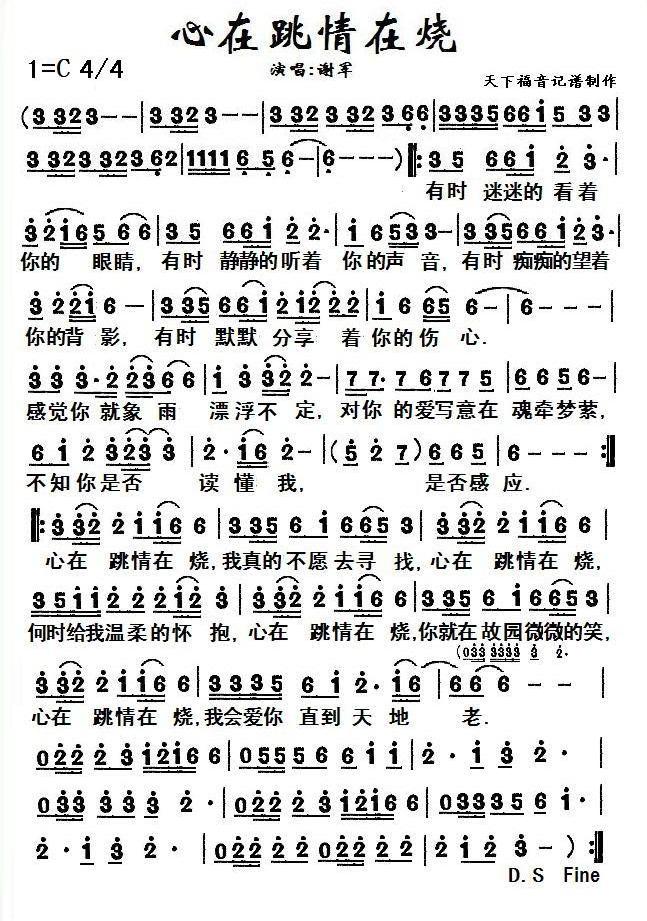 心在跳情在烧
1=C 4/4
演唱:谢军
天下福音记谱制作
(3 332 3 - - | 3 332 3 - - | 3 332 332 3 66 | 3335 661 5 33 |
332 332 332 3 62 | 1111 6 5 6 - | 6 - - ) ‖: 35 661 2 3· |
有时 迷迷的 看着
3 216 5 66 | 35 661 12 2· | 16 533 3 - | 335 661 123· |
你的 眼睛, 有时 静静的听着 你的声音, 有时 痴痴的望着
3·221 6 - | 335 661 2122 212 | 16 65 6 - | 6 - - - |
你的背影, 有时 默默 分享 着你的伤心.
33 3·2 2366 | 1·3 32 2 - | 77· 7·67 775 | 6566 - |
感觉你 就象 雨 漂浮不定, 对你 的爱写意在 魂牵梦萦,
612 3233 | 2· 16 2 - | (5 2 7) 665 | 6 - - - :‖
不知你是否 读懂我, 是否感应.
‖: 332 2116 6 | 335 6 1 665 3 | 332 2116 6 |
心在 跳情在 烧,我真的不愿去寻 找,心在 跳情在 烧,
3511 22 212 3 | 332 2116 6 | 335 6 1 665 3 |
何时给我温柔的怀 抱,心在 跳情在 烧,你就在故园微微的笑,
(033 3333 3 2·
332 2116 6 | 3335 61 2· | 216 66 6 - |
心在 跳情在 烧,我会爱你 直到 天地 老.
022 2 23 12166 | 055 5 66 1161 | 2· 1 3 2· |
033 3 33 2· | 022 2 23 12166 | 03335 6 1 |
2· 1 3 2· | 022 2 22 022 2 23 | 2· 1 3 - ) :‖
D.S Fine